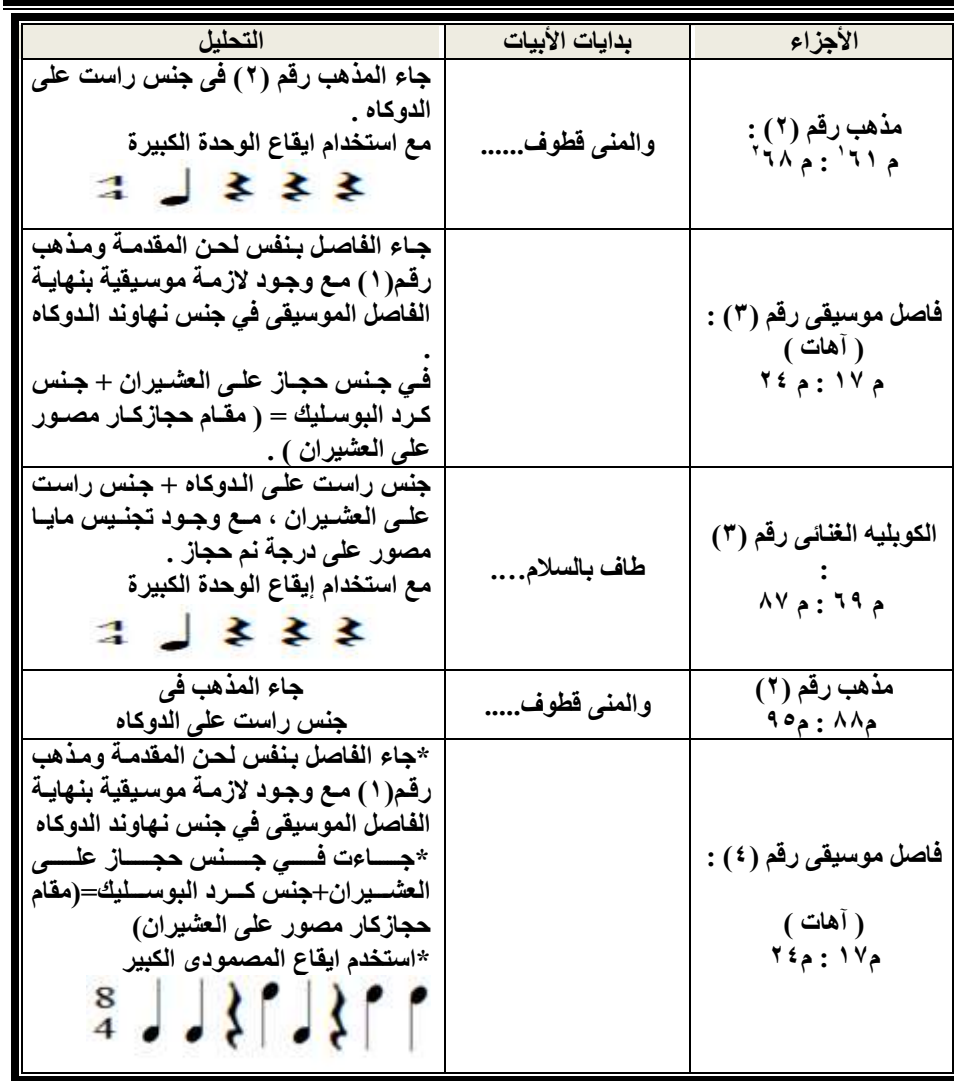 الأجزاء
بدايات الأبيات
التحليل
مذهب رقم (٢) :
م ٦١١ : م ٦٨٢
والمنى قطوف......
جاء المذهب رقم (٢) فى جنس راست على
الدوكاه .
مع استخدام ايقاع الوحدة الكبيرة
4
فاصل موسيقى رقم (٣) :
( آهات )
م ١٧ : م ٢٤
جاء الفاصل بنفس لحن المقدمة ومذهب
رقم(١) مع وجود لازمة موسيقية بنهاية
الفاصل الموسيقى في جنس نهاوند الدوكاه
.
في جنس حجاز على العشيران + جنس
كرد البوسليك = ( مقام حجازكار مصور
على العشيران ) .
الكوبليه الغنائى رقم (٣)
:
م ٦٩ : م ٨٧
طاف بالسلام....
جنس راست على الدوكاه + جنس راست
على العشيران ، مع وجود تجنيس مايا
مصور على درجة نم حجاز .
مع استخدام إيقاع الوحدة الكبيرة
4
مذهب رقم (٢)
م٨٨ : م٩٥
والمنى قطوف.....
جاء المذهب فى
جنس راست على الدوكاه
فاصل موسيقى رقم (٤) :
( آهات )
م١٧ : م٢٤
*جاء الفاصل بنفس لحن المقدمة ومذهب
رقم(١) مع وجود لازمة موسيقية بنهاية
الفاصل الموسيقى في جنس نهاوند الدوكاه
*جاءت في جنس حجاز على
العشيران+جنس كرد البوسليك=(مقام
حجازكار مصور على العشيران)
*استخدم ايقاع المصمودى الكبير
8
4